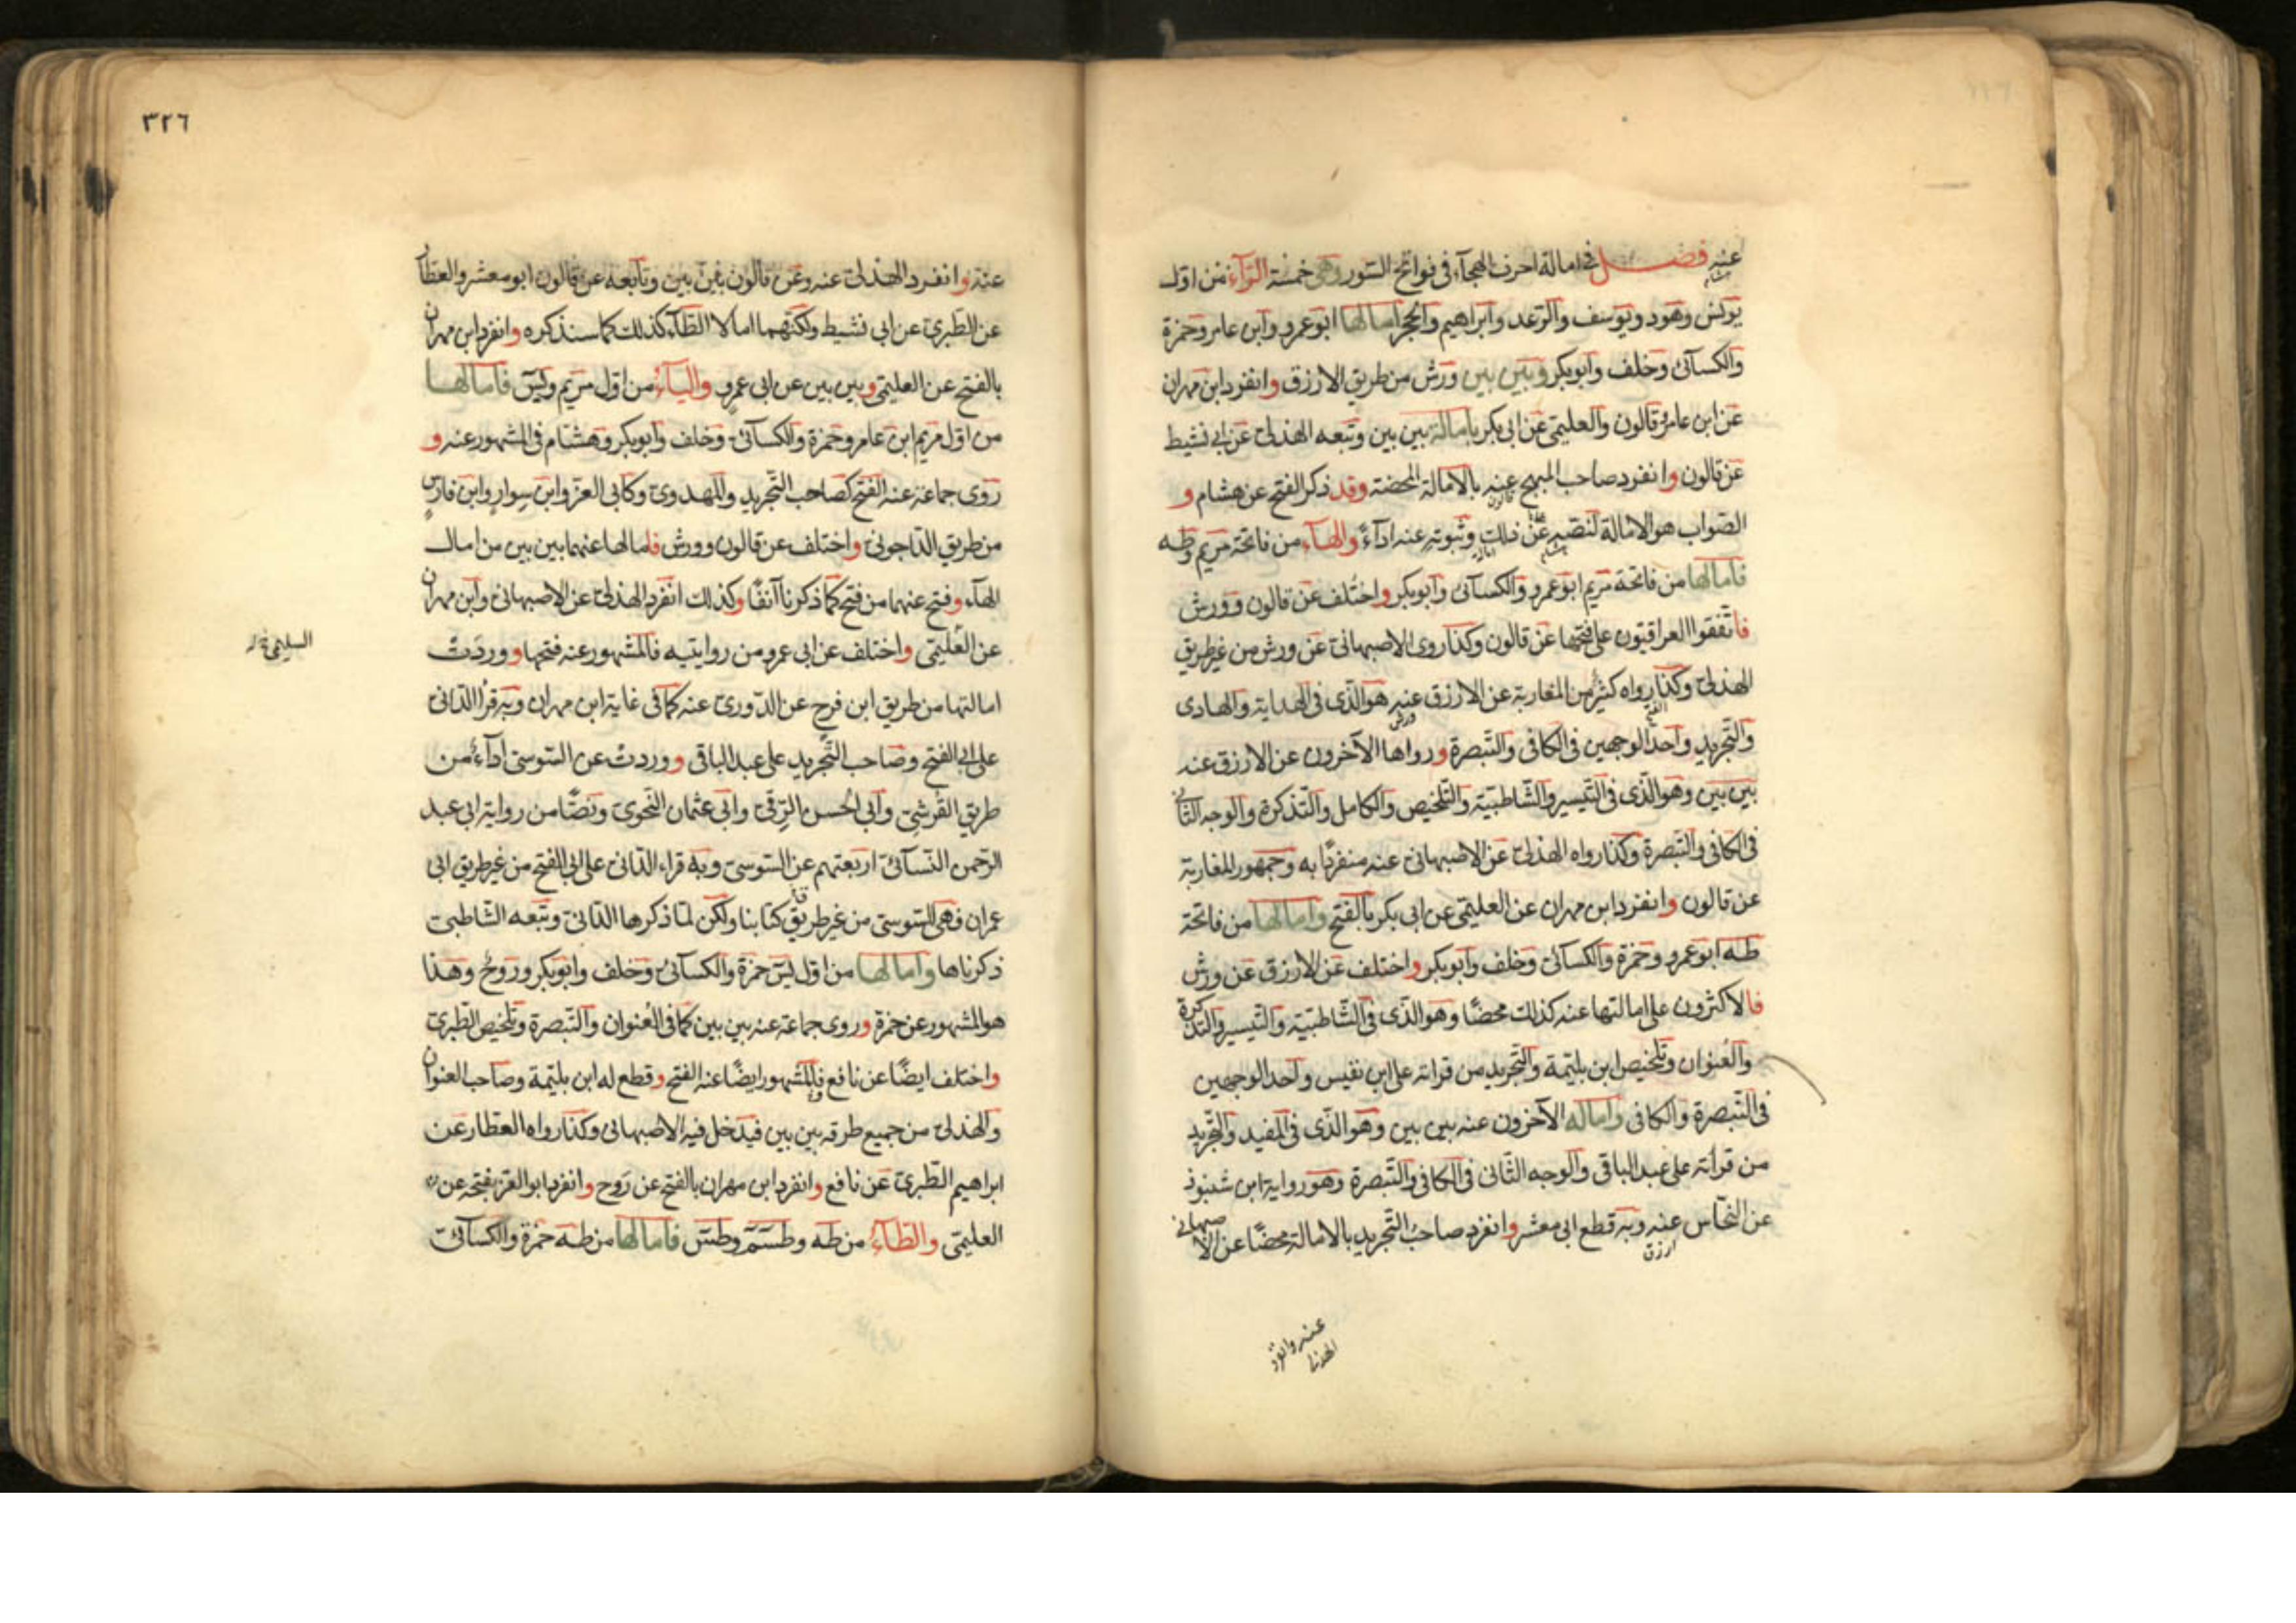 عنه فصل في امالة احرف الهجآء في فواتح السور وهي خمسة الرآء من اول
يونس وهود ويوسف والرعد وابراهيم والحجر امالها ابو عمرو وابن عامر وحمزة
والكسآئي وخلف وابو بكر وبين بين ورش من طريق الازرق وانفرد ابن مهران
عن ابن عامر وقالون والعليمي عن ابي بكر بامالة بين بين وتبعه الهذلي عن ابي نشيط
عن قالون وانفرد صاحب المبهج عنه بالامالة المحضة وقد ذكر الفتح عن هشام و
الصواب هو الامالة لنصه على ذلك وثبوته عنه ادآءً والهآء من فاتحة مريم وطه
فامالها من فاتحة مريم ابو عمرو والكسآئي وابو بكر واختلف عن قالون وورش
فاتفقوا العراقيون على فتحها عن قالون وكذا روى الاصبهاني عن ورش من غير طريق
الهذلي وكذا رواه كثير من المغاربة عن الازرق عنه هو الذي في الهداية والهادي
والتجريد واحد الوجهين في الكافي والتبصرة ورواها الآخرون عن الازرق عنه
بين بين وهو الذي في التيسير والشاطبية والتلخيص والكامل والتذكرة والوجه الثاني
في الكافي والتبصرة وكذا رواه الهذلي عن الاصبهاني عنه منفردًا به وجمهور المغاربة
عن قالون وانفرد ابن مهران عن العليمي عن ابي بكر بالفتح وامالها من فاتحة
طه ابو عمرو وحمزة والكسآئي وخلف وابو بكر واختلف عن الازرق عن ورش
فالاكثرون على امالتها عنه كذلك محضًا وهو الذي في الشاطبية والتيسير والتذكرة
والعنوان وتلخيص ابن بليمة والتجريد من قراته على ابن نفيس واحد الوجهين
في التبصرة والكافي واماله الآخرون عنه بين بين وهو الذي في المفيد والتجريد
من قرآته على عبد الباقي والوجه الثاني في الكافي والتبصرة وهو رواية ابن شنبوذ
عن النحاس عنه وبه قطع ابي معشر وانفرد صاحب التجريد بالامالة محضًا عن الاصبهاني
ازرق
عنه وانفرد
الهذلي
٣٢٦
عنه وانفرد الهذلي عنه وعن قالون بين بين وتابعه عن قالون ابو معشر والعطار
عن الطبري عن ابي نشيط ولكنهما امالا الطآء كذلك كما سنذكره وانفرد ابن مهران
بالفتح عن العليمي وبين بين عن ابي عمرو واليآء من اول مريم ويس فامالها
من اول مريم ابن عامر وحمزة والكسآئي وخلف وابو بكر وهشام في المشهور عنه و
روى جماعة عنه الفتح كصاحب التجريد والمهدوي وكابي العز وابن سوار وابن فارس
من طريق الداجوني واختلف عن قالون وورش فامالها عنهما بين بين من امال
الهآء وفتح عنهما من فتح كما ذكرنا آنفًا وكذلك انفرد الهذلي عن الاصبهاني وابن مهران
عن العليمي واختلف عن ابي عمرو من روايتيه فالمشهور عنه فتحها ووردت
امالتها من طريق ابن فرح عن الدوري عنه كما في غاية ابن مهران وبه قرأ الداني
على ابي الفتح وصاحب التجريد على عبد الباقي ووردت عن السوسي ادآءً من
طريق القرشي وابي الحسن الرقي وابي عثمان النحوي ونصًّا من رواية ابي عبد
الرحمن النسآئي اربعتهم عن السوسي وبه قراء الداني على ابي الفتح من غير طريق ابي
عمران فهي للسوسي من غير طريق كتابنا ولكن لما ذكرها الداني وتبعه الشاطبي
ذكرناها وامالها من اول يس حمزة والكسآئي وخلف وابو بكر وروح وهذا
هو المشهور عن حمزة وروى جماعة عنه بين بين كما في العنوان والتبصرة وتلخيص الطبري
واختلف ايضًا عن نافع فالمشهور ايضًا عنه الفتح وقطع له ابن بليمة وصاحب العنوان
والهذلي من جميع طرقه بين بين فيدخل فيه الاصبهاني وكذا رواه العطار عن
ابراهيم الطبري عن نافع وانفرد ابن مهران بالفتح عن روح وانفرد ابو العز بفتحه عن
العليمي والطآء من طه وطسم وطس فامالها من طه حمزة والكسآئي